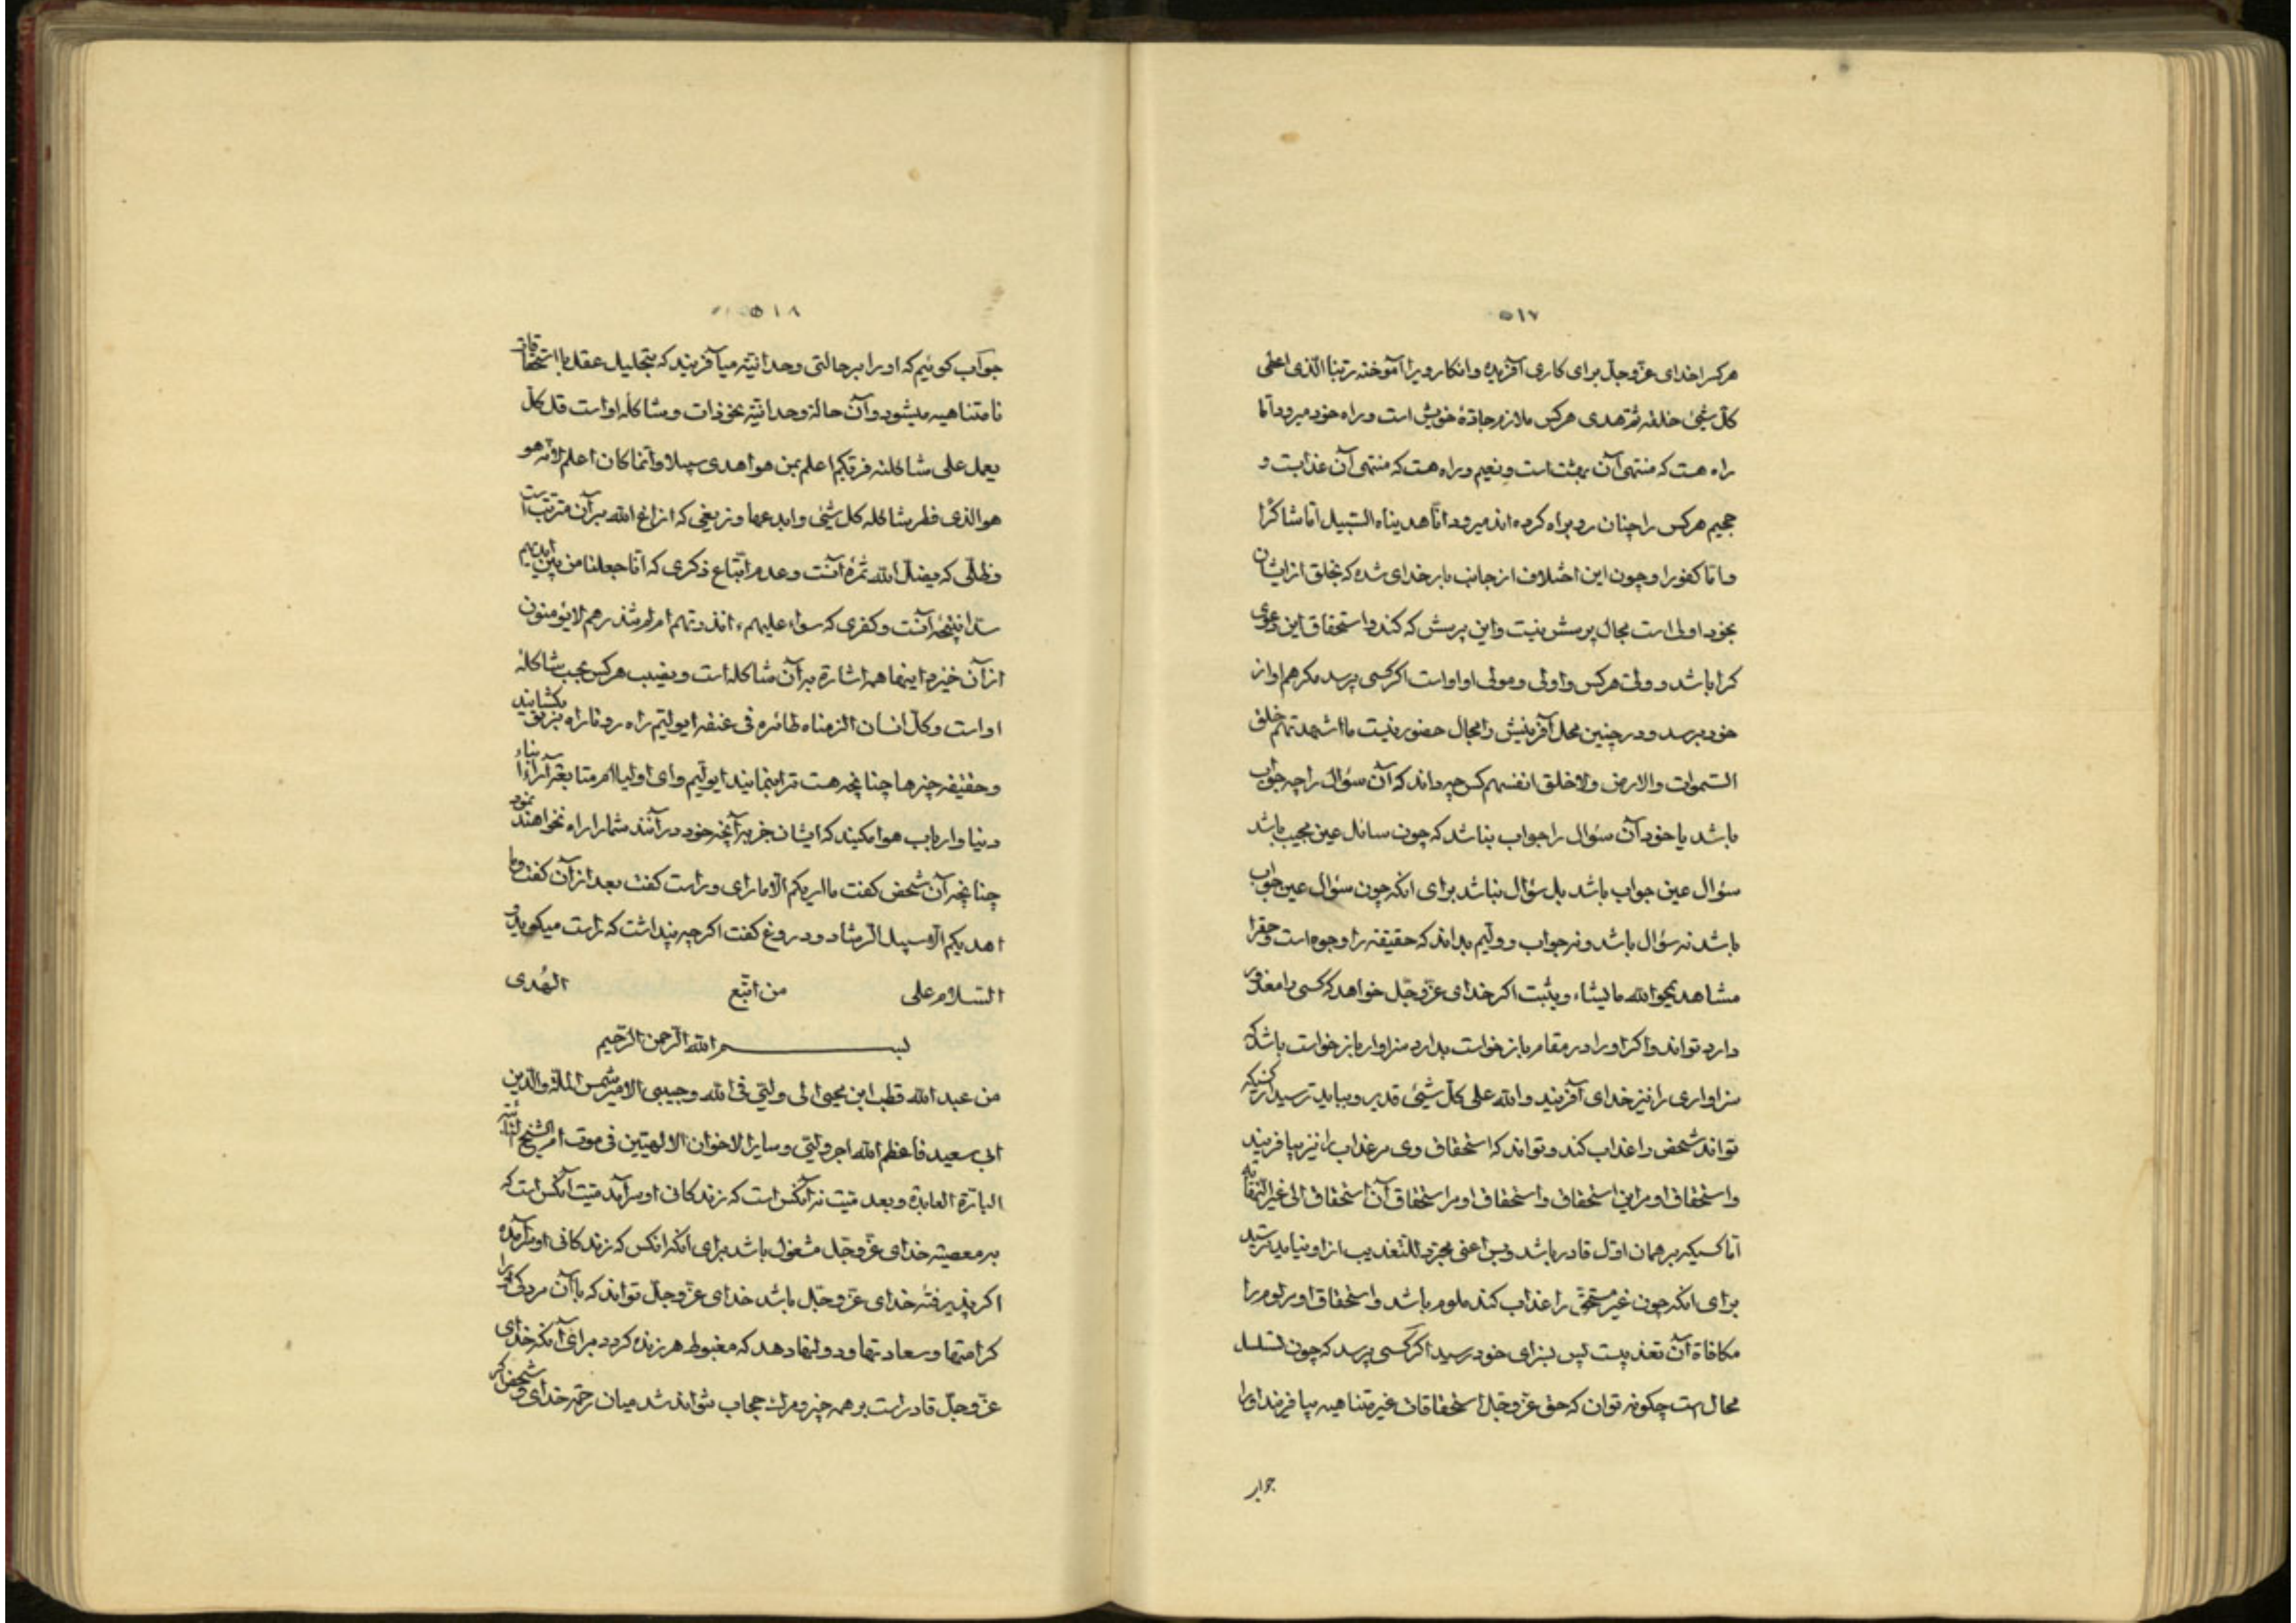 ۵۱۷
هرکسرا خدای عزّوجلّ برای کاری آفریده وانکار ویرا آموخته ربّنا الّذی اعطی
کلّ شیئ خلقه ثمّ هدی هرکس ملازم جادّهٔ خویش است وراه خود میرود امّا
راه هست که منتهی آن بهشت است ونعیم وراه هست که منتهی آن عذابست و
جحیم هرکس را چنان رو براه کرده اند میرود انّا هدیناه السّبیل امّا شاکرًا
وامّا کفورا وچون این اختلاف از جانب بار خدای شده که بخلق از ایشان
بخود اولی است مجال پرسش نیست واین پرسش که کند واستحقاق این دعوی
کرا باشد وولیّ هرکس واولی ومولی او اواست اکر کسی پرسد مکر هم او از
خود پرسد ودر چنین محل آفرینش را مجال حضور نیست ما اشهدتهم خلق
السّموات والارض ولا خلق انفسهم کس چه داند که آن سؤال را چه جواب
باشد یا خود آن سؤال را جواب نباشد که چون سائل عین مجیب باشد
سؤال عین جواب باشد بل سؤال نباشد برای انکه چون سؤال عین جواب
باشد نه سؤال باشد ونه جواب وولیّم بداند که حقیقة را وجوه است
مشاهد یمحو الله مایشاء ویثبت اکر خدای عزّوجّل خواهد که کسی را معذور
دارد تواند واکر او را در مقام بازخواست بدارد سزاوار بازخواست باشد که
سزاواری را نیز خدای آفریند والله علی کلّ شیئ قدیر وبباید ترسید از کسیکه
تواند شخص را عذاب کند وتواند که استحقاق وی مر عذاب را نیز بیافریند
واستحقاق او مر این استحقاق واستحقاق او مر استحقاق آن استحقاق الی غیر النّهایة
امّا کسیکه بر همان اوّل قادر باشد وبس اعنی مجرّد التّعذیب از او نباید ترسید
برای انکه چون غیر مستحّق را عذاب کند ملوم باشد واستحقاق او مر لوم را
مکافاة آن تعذیبست پس بسزای خود رسید اکر کسی پرسد که چون تسلسل
محال است چکونه توان که حق عزّوجّل استحقاقات غیر متناهیه بیافریند او را
جواب
۵۱۸
جواب کوئیم که او را بر حالتی وحدانیّه میآفریند که بتحلیل عقل با استحقاقات
نامتناهیه میشود وآن حالة وحدانیّه نحو ذات وشاکله اواست قل کلّ
یعمل علی شاکلته فربّکم اعلم بمن هو اهدی سبیلا وانّما کان اعلم لانّه هو
هو الذی فطر شاکله کل شیئ وابدعها وزیغی که ازاغ الله بر آن مترتّب است
وظلّی که یضلّ الله ثمرهٔ آنست وعدم اتّباع ذکری که انّا جعلنا من بین ایدیهم
سدّا نتیجهٔ آنست وکفری که سواء علیهم ءانذرتهم ام لم تنذرهم لا یؤمنون
از آن خیزد اینها همه اشارة بر آن شاکله است ونصیب هرکس بحسب شاکلهٔ
اواست وکلّ انسان الزمناه طائره فی عنقه ایولیّم راه رو تا راه بر تو بکشایند
وحقیقه چیزها چنانچه هست ترا بنمایند ایولیّم وای اولیا امر متابعة آراء ابناء
دنیا وارباب هوا مکنید که ایشان جز بر آنچه خود در آنند شما را راه نخواهند نمود
چنانچه آن شخص کفت ما اریکم الّا ما اری وراست کفت بعد از آن کفت وما
اهدیکم الّا سبیل الرّشاد ودروغ کفت اکرچه پنداشت که راست میکوید و
السّلام علی من اتّبع الهُدی
بسم الله الرّحمن الرّحیم
من عبد الله قطب ابن محیی الی ولیّی فی الله وحبیبی الامیر شمس الملّة والدّین
ابی سعید فاعظم الله اجر ولیّی وسایر الاخوان الالهیّین فی موت
البارّة العابدة وبعد میّت نه آنکس است که زندکانی او سرآید میّت آنکس است که
بر معصیة خدای عزّوجّل مشغول باشد برای آنکه انکس که زندکانی او سرآمده
اکر پذیرفتهٔ خدای عزّوجّل باشد خدای عزّوجلّ تواند که با آن مردکی او را
کرامتها وسعادتها ودولتها دهد که مغبوط هر زنده کردد برای آنکه خدای
عزّوجلّ قادر است بر همه چیز ومرک حجاب نتواند شد میان رحمة خدای وشخص اکر